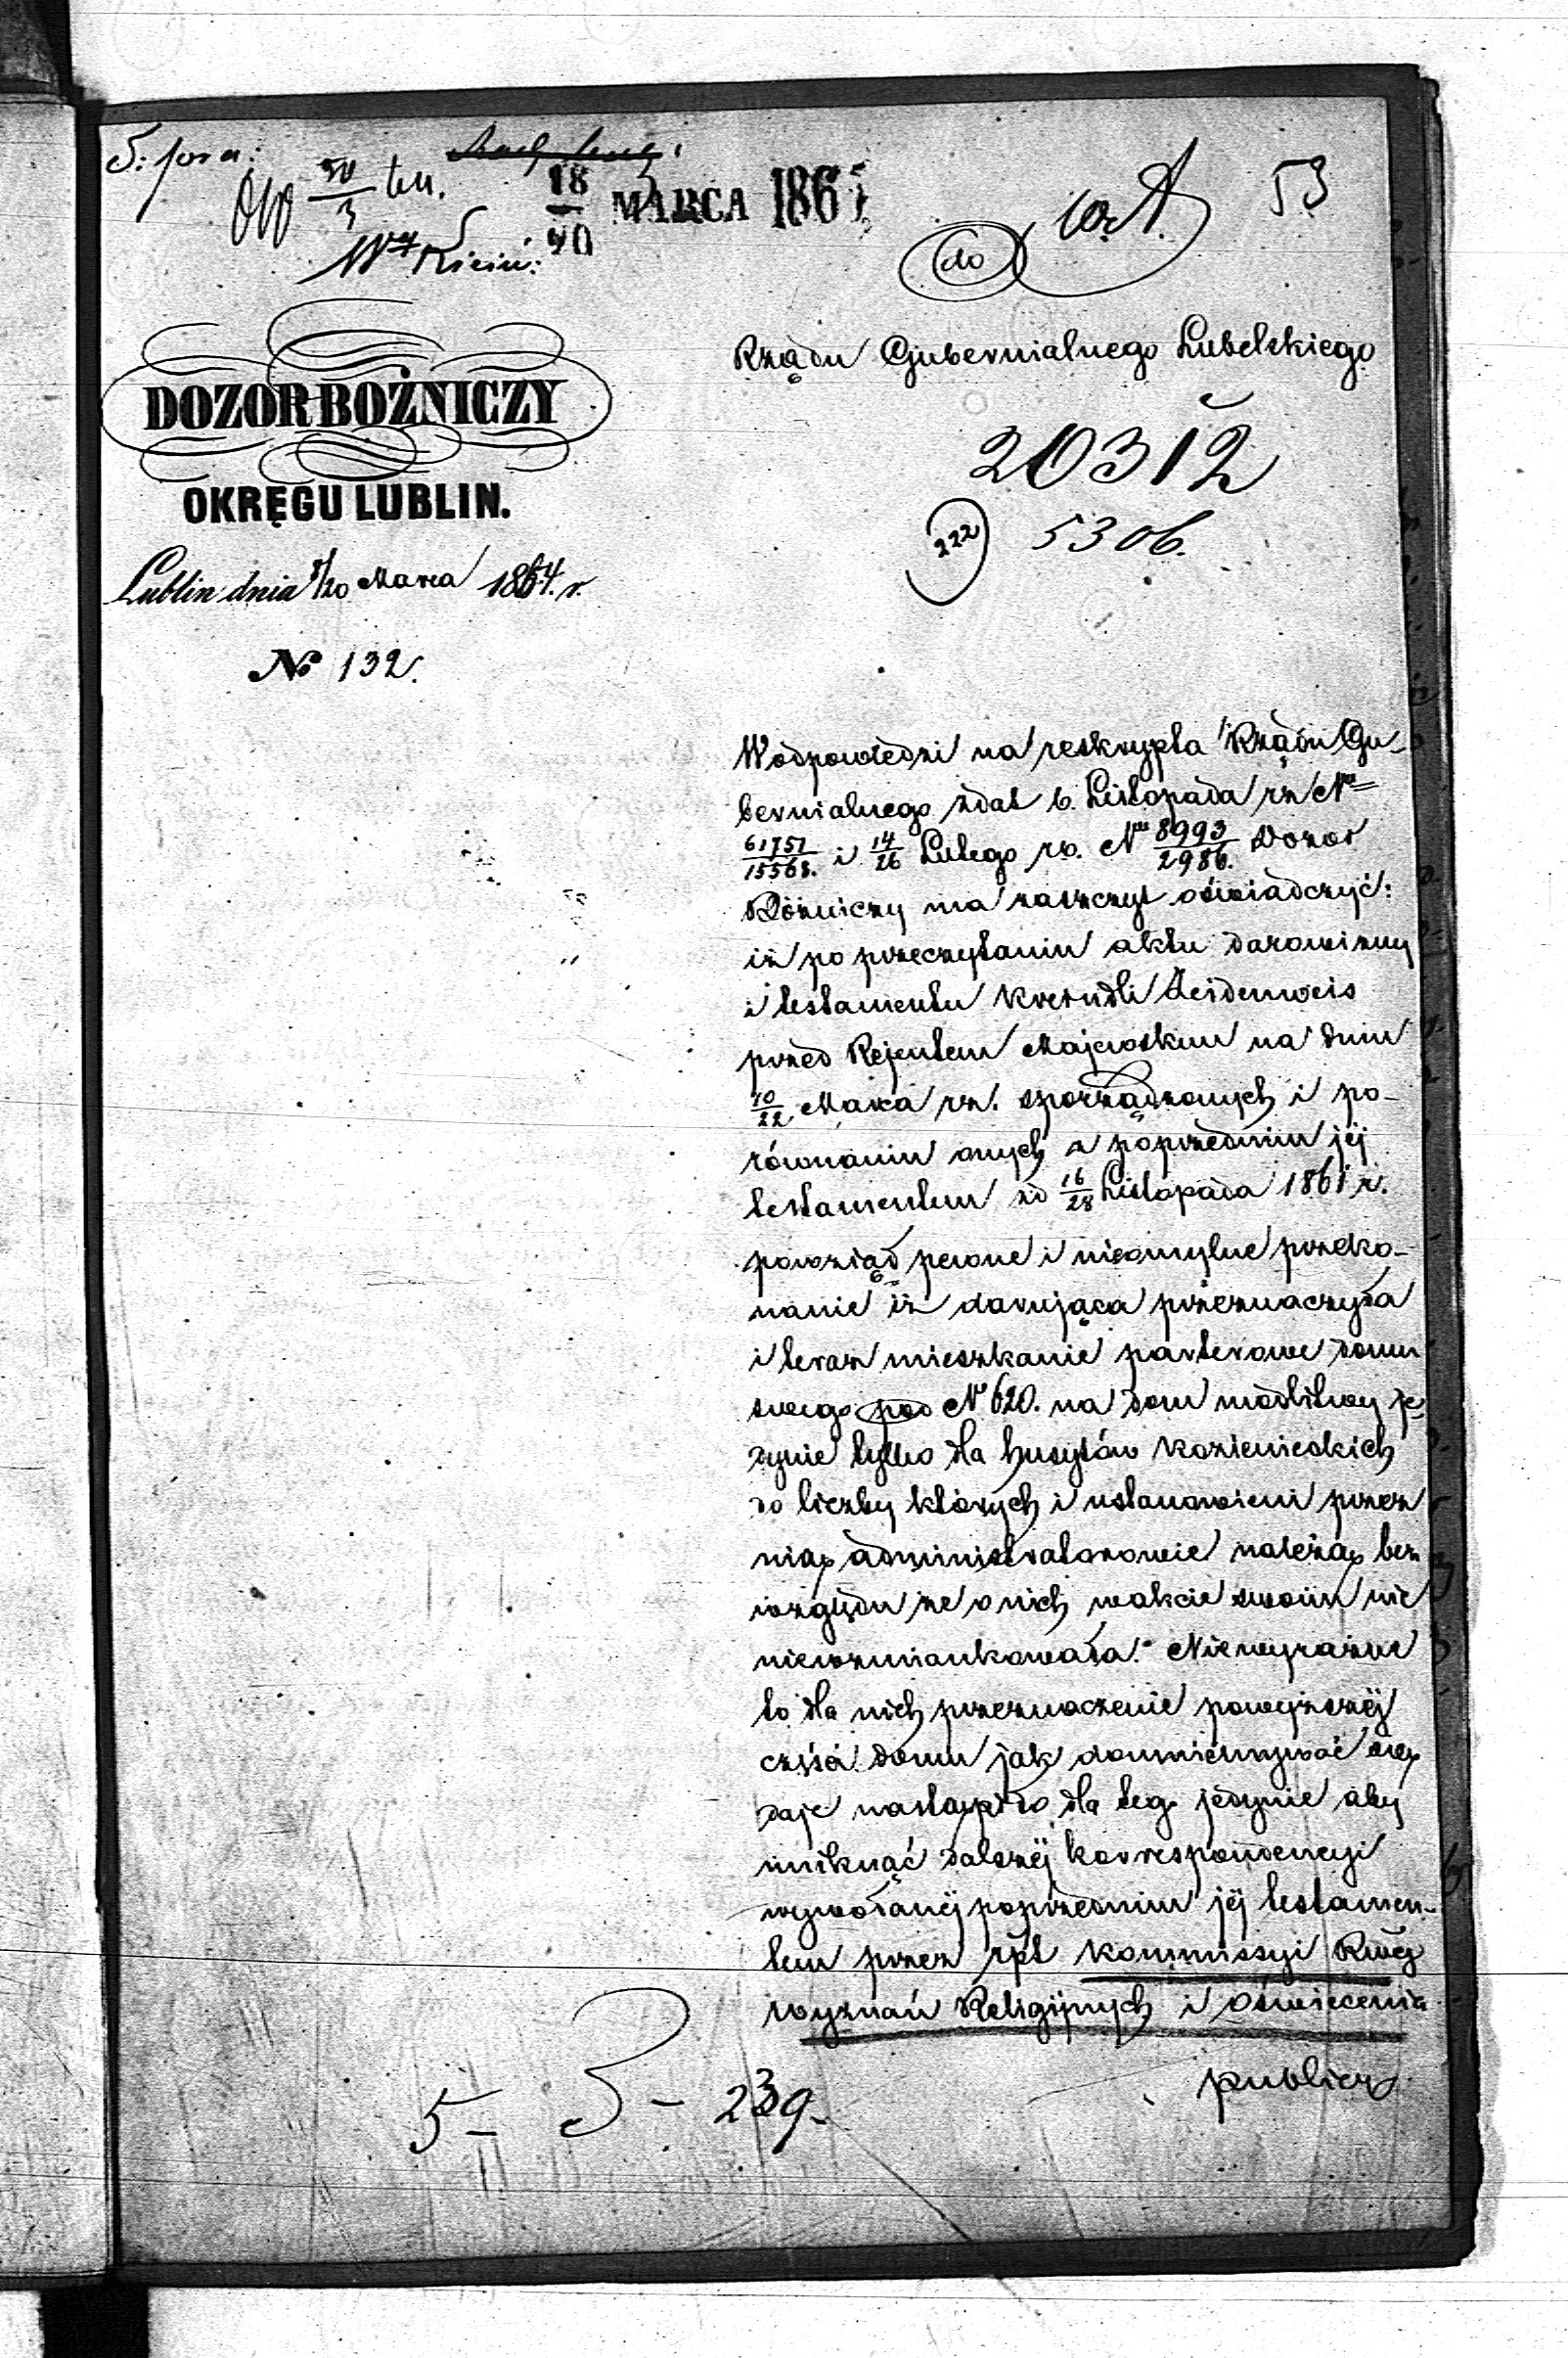 53
18/30 MARCA 186
W. A.
do
Rządu Gubernialnego Lubelskiego
DOZOR BOŻNICZY
OKRĘGU LUBLIN.
20312
5306.
222
Lublin dnia 8/20 Marca 1864. r.
No 132.
W odpowiedzi na reskrypta Rządu Gu-
bernialnego zdat 6. Listopada rz Nro
61751/15568. i 14/26 Lutego rb. Nro 8993/2986. Dozor
Bóżniczy ma zaszczyt oświadczyć:
iż po przeczytaniu aktu darowizny
i testamentu Krejndli Zeidenweis
przed Rejentem Majewskim na dniu
10/22 Marca rz. sporządzonych i po-
równaniu onych z poprzednim jéj
testamentem zd 16/28 Listopada 1861 r.
powziął pewne i nieomylne przeko-
nanie iż darująca przeznaczyła
i teraz mieszkanie parterowe domu
swego pod No 620. na dom modlitwy je-
dynie tylko dla husytów Kozienieckich
do liczby których i ustanowieni przez
nią administratorowie należą bez
względu że o nich w akcie swoim nic
niewzmiankowała. Niewyraźne
to dla nich przeznaczenie powyższéj
części domu jak domniemywać się
daje nastąpiło dla tego jedynie aby
uniknąć dalszéj korrespondencyi
wywołanéj poprzednim jéj testamen-
tem przez rpt Kommissyi Rwéj
Wyznań Religijnych i Oświecenia
public
5 - 3 - 239.